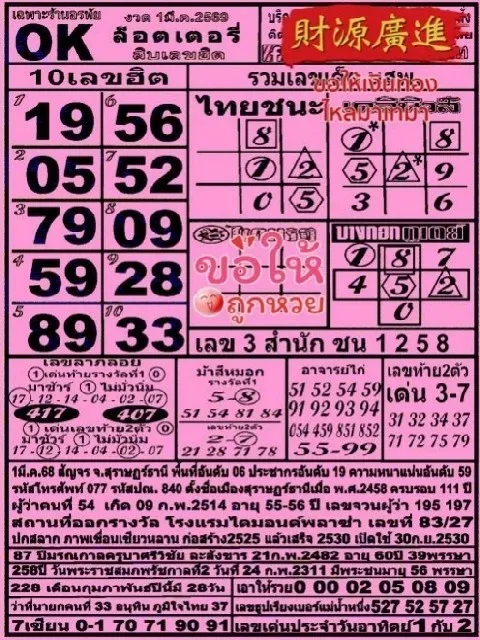 เฉพาะร้านอรทัย
OK
งวด 1มี.ค.2569
ล๊อตเตอรี่
สิบเลขฮิต
財源廣進
ขอให้เงินทอง
ไหลมาเทมา
10เลขฮิต
1 19 6 56
2 05 7 52
3 79 8 09
4 59 9 28
5 89 10 33
ไทยชนะ
8
1 2
0 5
1* 8
5 2* 9
3 6
บางกอก
1 8 7
4 5 2
0
ขอให้
ถูกหวย
เลข 3 สำนัก ชน 1 2 5 8
เลขลาภลอย
1 เด่นท้ายรางวัลที่1 0
มาชัวร์ 1 ไม่มั่วนิ่ม
17-12-14-04-02-07
417 407
1 เด่นเลขท้าย2ตัว 0
มาชัวร์ 1 ไม่มั่วนิ่ม
17-12-14-04-02-07
ม้าสีหมอก
รางวัลที่1
5-8
51 54 81 84
เลขท้าย2ตัว
2-7
21 28 71 78
อาจารย์ไก่
51 52 54 59
91 92 93 94
054 459 851 852
55-99
เลขท้าย2ตัว
เด่น 3-7
31 32 34 37
71 72 75 79
1มี.ค.68 สัญจร จ.สุราษฎร์ธานี พื้นที่อันดับ 06 ประชากรอันดับ 19 ความหนาแน่นอันดับ 59
รหัสโทรศัพท์ 077 รหัสปณ. 840 ตั้งชื่อเมืองสุราษฎร์ธานีเมื่อ พ.ศ.2458 ครบรอบ 111 ปี
ผู้ว่าคนที่ 54 เกิด 09 ก.พ.2514 อายุ 55-56 ปี เลขจวนผู้ว่า 195 197
สถานที่ออกรางวัล โรงแรมไดมอนด์พลาซ่า เลขที่ 83/27
ปกสลาก ภาพเขื่อนเชี่ยวหลาน ก่อสร้าง2525 แล้วเสร็จ 2530 เปิดใช้ 30ก.ย.2530
87 ปีมรณภาคครูบาศรีวิชัย ละสังขาร 21ก.พ.2482 อายุ 60ปี 39พรรษา
258ปี วันพระราชสมภพรัชกาลที่2 วันที่ 24 ก.พ.2311 มีพระชนมายุ 56 พรรษา
228 เดือนกุมภาพันธ์ปีนี้มี 28วัน
เอาให้รวย 0 00 02 05 08 09
ว่าที่นายกคนที่ 33 อนุทิน ภูมิใจไทย 37
เลขธูปเรียงเบอร์แม่น้ำหนึ่ง 527 52 57 27
7เซียน 0-1 70 71 90 91
เลขเด่นประจำวันอาทิตย์ 1 กับ 2